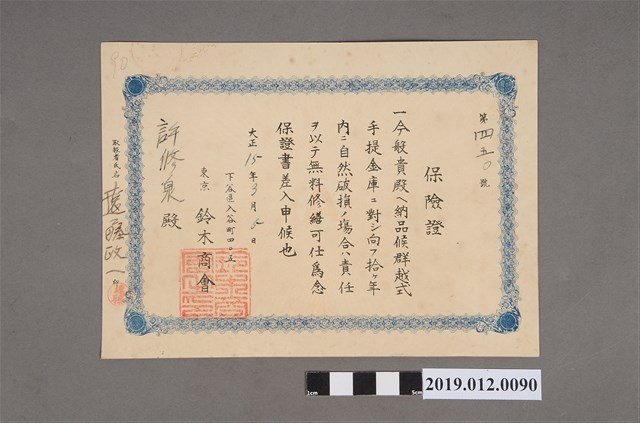 第四五〇號
保險證
一今般貴殿ヘ納品候群越式
手提金庫ニ對シ向フ拾ヶ年
内ニ自然破損ノ場合ハ責任
ヲ以テ無料修繕可仕爲念
保證書差入申候也
大正15年3月 日
下谷區入谷町四〇五
東京 鈴木商會
許修泉殿
取扱者氏名 遠藤政一 印
90
1cm
5cm
2019.012.0090